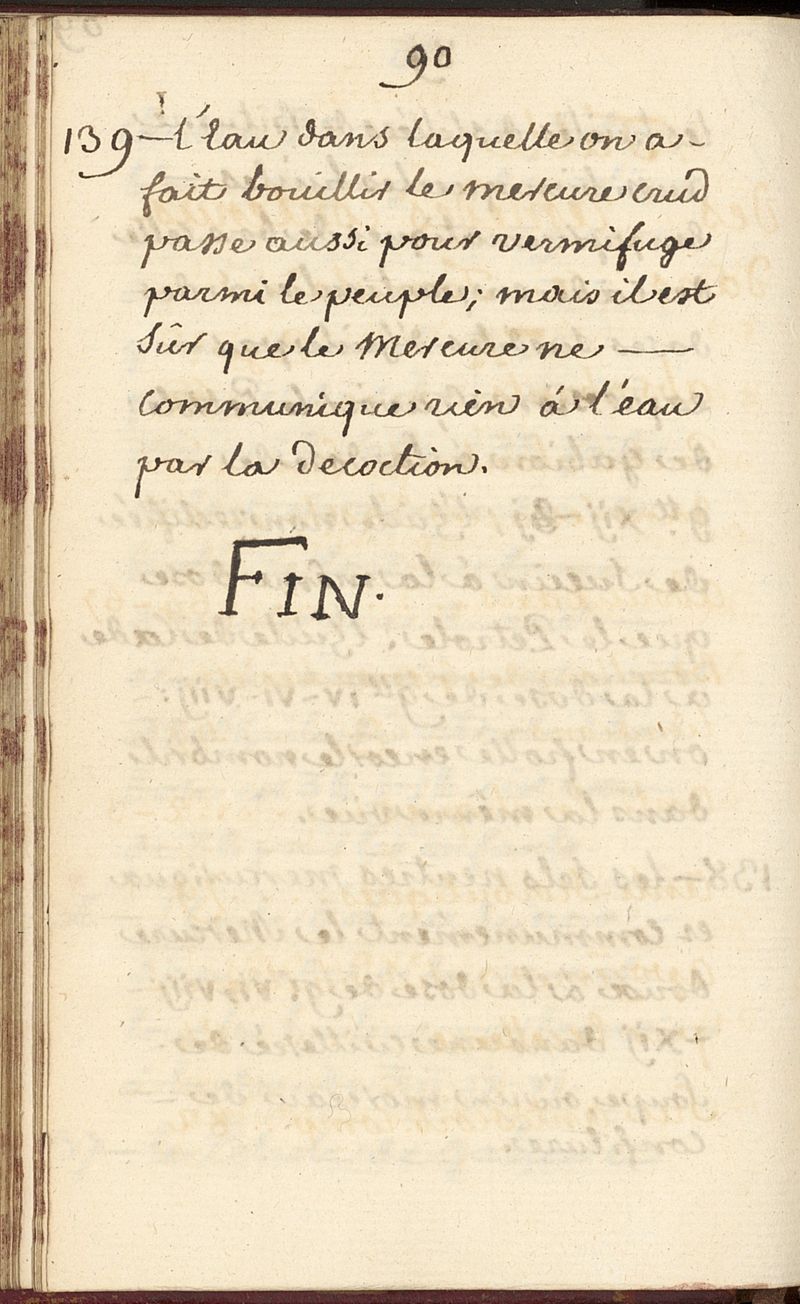 90
139 — l'eau dans laquelle on a -
fait bouillir le mercure crud
passe aussi pour vermifuge
parmi le peuple; mais il est
sûr que le Mercure ne —
communique rien á l'éau
par la decoction.
FIN.